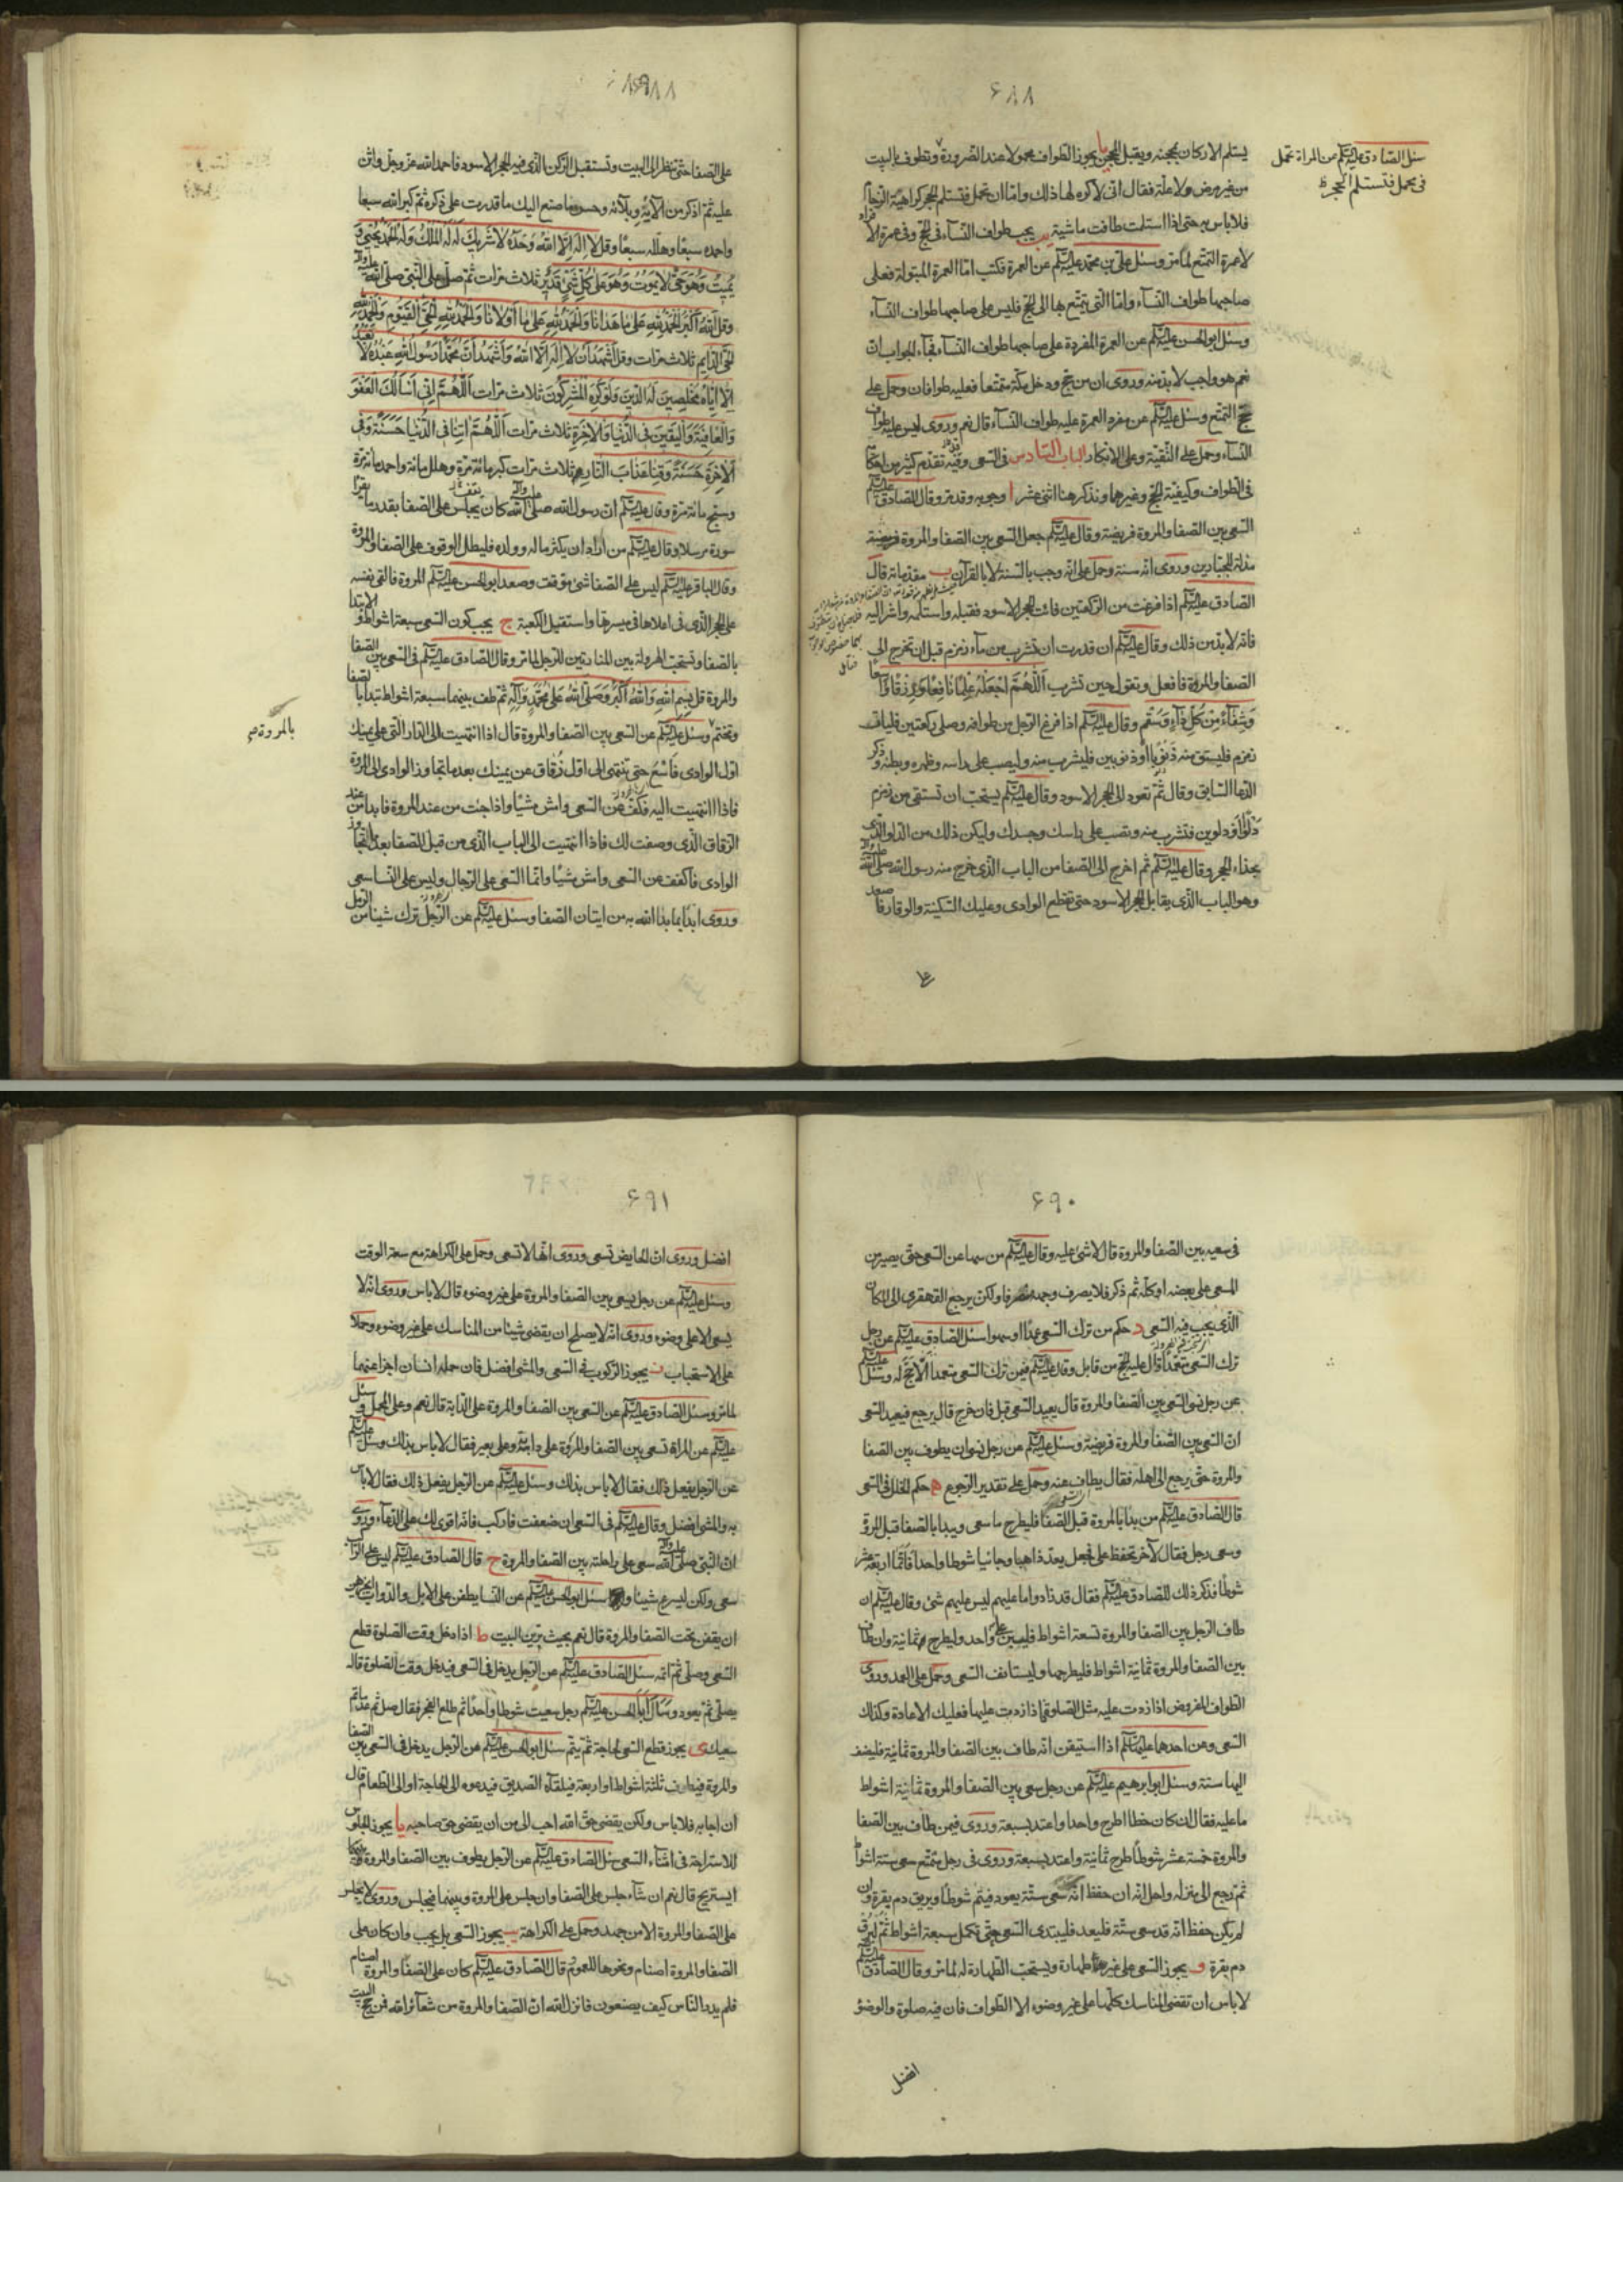 ٤٨٨
يستلم الاركان بمحجنه ويقبل المحجن يا يجوز الطواف محمولا عند الضرورة وتطوف بالبيت
سئل الصادق عليه السلام عن المراة تحمل
فى محمل فتستلم الحجر
من غير مرض ولا علة فقال انى لاكره لها ذلك واما ان تحمل فتستلم الحجر كراهية الزحام
فلا باس به حتى اذا استلمت طافت ماشية يب يجب طواف النسآء فى الحج وفى عمرة الافراد
لا عمرة التمتع لما مر وسئل على بن محمد عليه السلام عن العمرة فكتب اما العمرة المبتولة فعلى
صاحبها طواف النسآء واما التى يتمتع بها الى الحج فليس على صاحبها طواف النسآء
وسئل ابو الحسن عليه السلام عن العمرة المفردة على صاحبها طواف النسآء فجآء الجواب ان
نعم هو واجب لا بد منه وروى ان من حج ودخل مكة متمتعا فعليه طوافان وحمل على
حج التمتع وسئل عليه السلام عن مفرد العمرة عليه طواف النسآء قال نعم وروى ليس عليه طواف
النسآء وحمل على التقية وعلى الانكار الباب السادس فى السعى وفيه تقدم كثير من احكامه
فى الطواف وكيفية الحج وغيرهما ونذكر هنا اثنى عشر ا وجوبه وقد مر وقال الصادق عليه السلام
السعى بين الصفا والمروة فريضة وقال عليه السلام جعل السعى بين الصفا والمروة فريضة
مذلة للجبارين وروى انه سنة وحمل على انه وجب بالسنة لا بالقرآن ب مقدماته قال
الصادق عليه السلام اذا فرغت من الركعتين فائت الحجر الاسود فقبله واستلمه واشر اليه
فانه لا بد من ذلك وقال عليه السلام ان قدرت ان تشرب من مآء زمزم قبل ان تخرج الى
الصفا والمروة فافعل وتقول حين تشرب اللهم اجعله علما نافعا ورزقا واسعا
وشفآء من كل دآء وسقم وقال عليه السلام اذا فرغ الرجل من طوافه وصلى ركعتين فليات
زمزم فليستق منه ذنوبا او ذنوبين فليشرب منه وليصب على راسه وظهره وبطنه وذكر
الدعا السابق وقال ثم تعود الى الحجر الاسود وقال عليه السلام يستحب ان تستقى من زمزم
دلوا او دلوين فتشرب منه وتصب على راسك وجسدك وليكن ذلك من الدلو الذى
بحذاء الحجر وقال عليه السلام ثم اخرج الى الصفا من الباب الذى خرج منه رسول الله صلى الله عليه وآله
وهو الباب الذى يقابل الحجر الاسود حتى تقطع الوادى وعليك السكينة والوقار فاصعد
على
على الصفا حتى تنظر الى البيت وتستقبل الركن الذى فيه الحجر الاسود فاحمد الله عز وجل واثن
عليه ثم اذكر من آلائه وبلائه وحسن ما صنع اليك ما قدرت على ذكره ثم كبر الله سبعا
واحمده سبعا وهلله سبعا وقل لا اله الا الله وحده لا شريك له له الملك وله الحمد يحيى و
يميت وهو حى لا يموت وهو على كل شئ قدير ثلاث مرات ثم صل على النبى صلى الله عليه وآله
وقل الله اكبر الحمد لله على ما هدانا والحمد لله على ما اولانا والحمد لله الحى القيوم والحمد لله
الحى الدايم ثلاث مرات وقل اشهد ان لا اله الا الله واشهد ان محمدا رسول الله عبده لا نعبد
الا اياه مخلصين له الدين ولو كره المشركون ثلاث مرات اللهم انى اسالك العفو
والعافية واليقين فى الدنيا والاخرة ثلاث مرات اللهم اتنا فى الدنيا حسنة وفى
الاخرة حسنة وقنا عذاب النار ثلاث مرات كبر مائة مرة وهلل مائة واحمد مائة مرة
وسبح مائة مرة وقال عليه السلام ان رسول الله صلى الله عليه وآله كان يجلس على الصفا بقدر ما يقرا
سورة مرسلا وقال عليه السلام من اراد ان يكثر ماله وولده فليطل الوقوف على الصفا والمروة
وقال الباقر عليه السلام ليس على الصفا شئ موقت وصعد ابو الحسن عليه السلام المروة فالقى نفسه
على الحجر الذى فى اعلاها فى ميسرتها واستقبل الكعبة ج يجب كون السعى سبعة اشواط والابتدا
بالصفا وتستحب الهرولة بين المنارتين للرجل لما مر وقال الصادق عليه السلام فى السعى بين الصفا
والمروة قل بسم الله والله اكبر وصلى الله على محمد وآله ثم طف بينهما سبعة اشواط تبدأ بالصفا
وتختم بالمروة وسئل عليه السلام عن السعى بين الصفا والمروة قال اذا انتهيت الى الدار التى على يمينك
اول الوادى فاسع حتى تنتهى الى اول زقاق عن يمينك بعد ما تجاوز الوادى الى المروة
فاذا انتهيت اليه فكف عن السعى وامش مشيا واذا جئت من عند المروة فابدا من عند
الزقاق الذى وصفت لك فاذا انتهيت الى الباب الذى من قبل الصفا بعد ما تجاوز
الوادى فاكفف عن السعى وامش مشيا وانما السعى على الرجال وليس على النسا سعى
وروى ابدا بما بدا الله به من اتيان الصفا وسئل عليه السلام عن الرجل ترك شيئا من الرمل
٤٩٠
فى سعيه بين الصفا والمروة قال لا شئ عليه وقال عليه السلام من سها عن السعى حتى يصير من
المسعى على بعضه او كله ثم ذكر فلا يصرف وجهه منصرفا ولكن يرجع القهقرى الى المكان
الذى يجب فيه السعى د حكم من ترك السعى عمدا او سهوا سئل الصادق عليه السلام عن رجل
ترك السعى متعمدا قال عليه الحج من قابل وقال عليه السلام فيمن ترك السعى متعمدا لا حج له وسئل عليه السلام
عن رجل نسى السعى بين الصفا والمروة قال يعيد السعى قيل فان خرج قال يرجع فيعيد السعى
ان السعى بين الصفا والمروة فريضة وسئل عليه السلام عن رجل نسى ان يطوف بين الصفا
والمروة حتى يرجع الى اهله فقال يطاف عنه وحمل على تقدير الرجوع ه حكم الخلل فى السعى
قال الصادق عليه السلام من بدا بالمروة قبل الصفا فليطرح ما سعى ويبدا بالصفا قبل المروة
وسعى رجل فقال لآخر تحفظ على فجعل يعد ذاهبا وجائيا شوطا واحدا فاتما اربعة عشر
شوطا فذكر ذلك للصادق عليه السلام فقال قد زادوا ما عليهم ليس عليهم شئ وقال عليه السلام ان
طاف الرجل بين الصفا والمروة تسعة اشواط فليسع على واحد وليطرح ثمانية وان طاف
بين الصفا والمروة ثمانية اشواط فليطرحها وليستانف السعى وحمل على العمد وروى
الطواف المفروض اذا زدت عليه مثل الصلوة اذا زدت عليها فعليك الاعادة وكذلك
السعى وعن احدهما عليهما السلام اذا استيقن انه طاف بين الصفا والمروة ثمانية فليضف
اليها ستة وسئل ابو ابرهيم عليه السلام عن رجل سعى بين الصفا والمروة ثمانية اشواط
ما عليه فقال ان كان خطا اطرح واحدا واعتد بسبعة وروى فيمن طاف بين الصفا
والمروة خمسة عشر شوطا طرح ثمانية واعتد بسبعة وروى فى رجل متمتع سعى ستة اشواط
ثم رجع الى منزله واحل انه ان حفظ انه سعى ستة يعود فيتم شوطا ويريق دم بقرة وان
لم يكن حفظ انه قد سعى ستة فليعد فليبتدى السعى حتى تكمل سبعة اشواط ثم ليرق
دم بقرة و يجوز السعى على غير طهارة ويستحب الطهارة له لما مر وقال الصادق عليه السلام
لا باس ان تقضى المناسك كلها على غير وضوء الا الطواف فان فيه صلوة والوضؤ
افضل
٤٩١
افضل وروى ان الحايض تسعى وروى انها لا تسعى وحمل على الكراهة مع سعة الوقت
وسئل عليه السلام عن رجل يسعى بين الصفا والمروة على غير وضوء قال لا باس وروى انه لا
يسعى الا على وضوء وروى انه لا يصلح ان يقضى شيئا من المناسك على غير وضوء وحملا
على الاستحباب ز يجوز الركوب فى السعى والمشى افضل فان حمله انسان اجزا عنهما
لما مر وسئل الصادق عليه السلام عن السعى بين الصفا والمروة على الدابة قال نعم وعلى المحمل وسئل
عليه السلام عن المراة تسعى بين الصفا والمروة على دابة وعلى بعير فقال لا باس بذلك وسئل عليه السلام
عن الرجل يفعل ذلك فقال لا باس بذلك وسئل عليه السلام عن الرجل يفعل ذلك فقال لا باس
به والمشى افضل وقال عليه السلام فى السعى ان ضعفت فاركب فانه اقوى لك على الدعآء وروى
ان النبى صلى الله عليه وآله سعى على راحلته بين الصفا والمروة ح قال الصادق عليه السلام ليس على الراكب
سعى ولكن ليسرع شيئا وسئل ابو الحسن عليه السلام عن النسا يطفن على الابل والدواب ايجزيهن
ان يقفن تحت الصفا والمروة قال نعم بحيث يرين البيت ط اذا دخل وقت الصلوة قطع
السعى وصلى ثم اتمه سئل الصادق عليه السلام عن الرجل يدخل فى السعى فيدخل وقت الصلوة قال
يصلى ثم يعود وسال ابا الحسن عليه السلام رجل سعيت شوطا واحدا ثم طلع الفجر فقال صل ثم عد فاتم
سعيك ى يجوز قطع السعى لحاجة ثم يتم سئل ابو الحسن عليه السلام عن الرجل يدخل فى السعى بين الصفا
والمروة فيطوف ثلثة اشواط او اربعة فيلقاه الصديق فيدعوه الى الحاجة او الى الطعام قال
ان اجابه فلا باس ولكن يقضى حق الله احب الى من ان يقضى حق صاحبه يا يجوز الجلوس
للاستراحة فى اثنآء السعى سئل الصادق عليه السلام عن الرجل يطوف بين الصفا والمروة
ايستريح قال نعم ان شآء جلس على الصفا وان جلس على المروة وبينهما فيجلس وروى لا يجلس
على الصفا والمروة الا من جهد وحمل على الكراهة يب يجوز السعى بل يجب وان كان على
الصفا والمروة اصنام ونحوها للعموم قال الصادق عليه السلام كان على الصفا والمروة اصنام
فلم يدر الناس كيف يصنعون فانزل الله ان الصفا والمروة من شعآئر الله فمن حج البيت